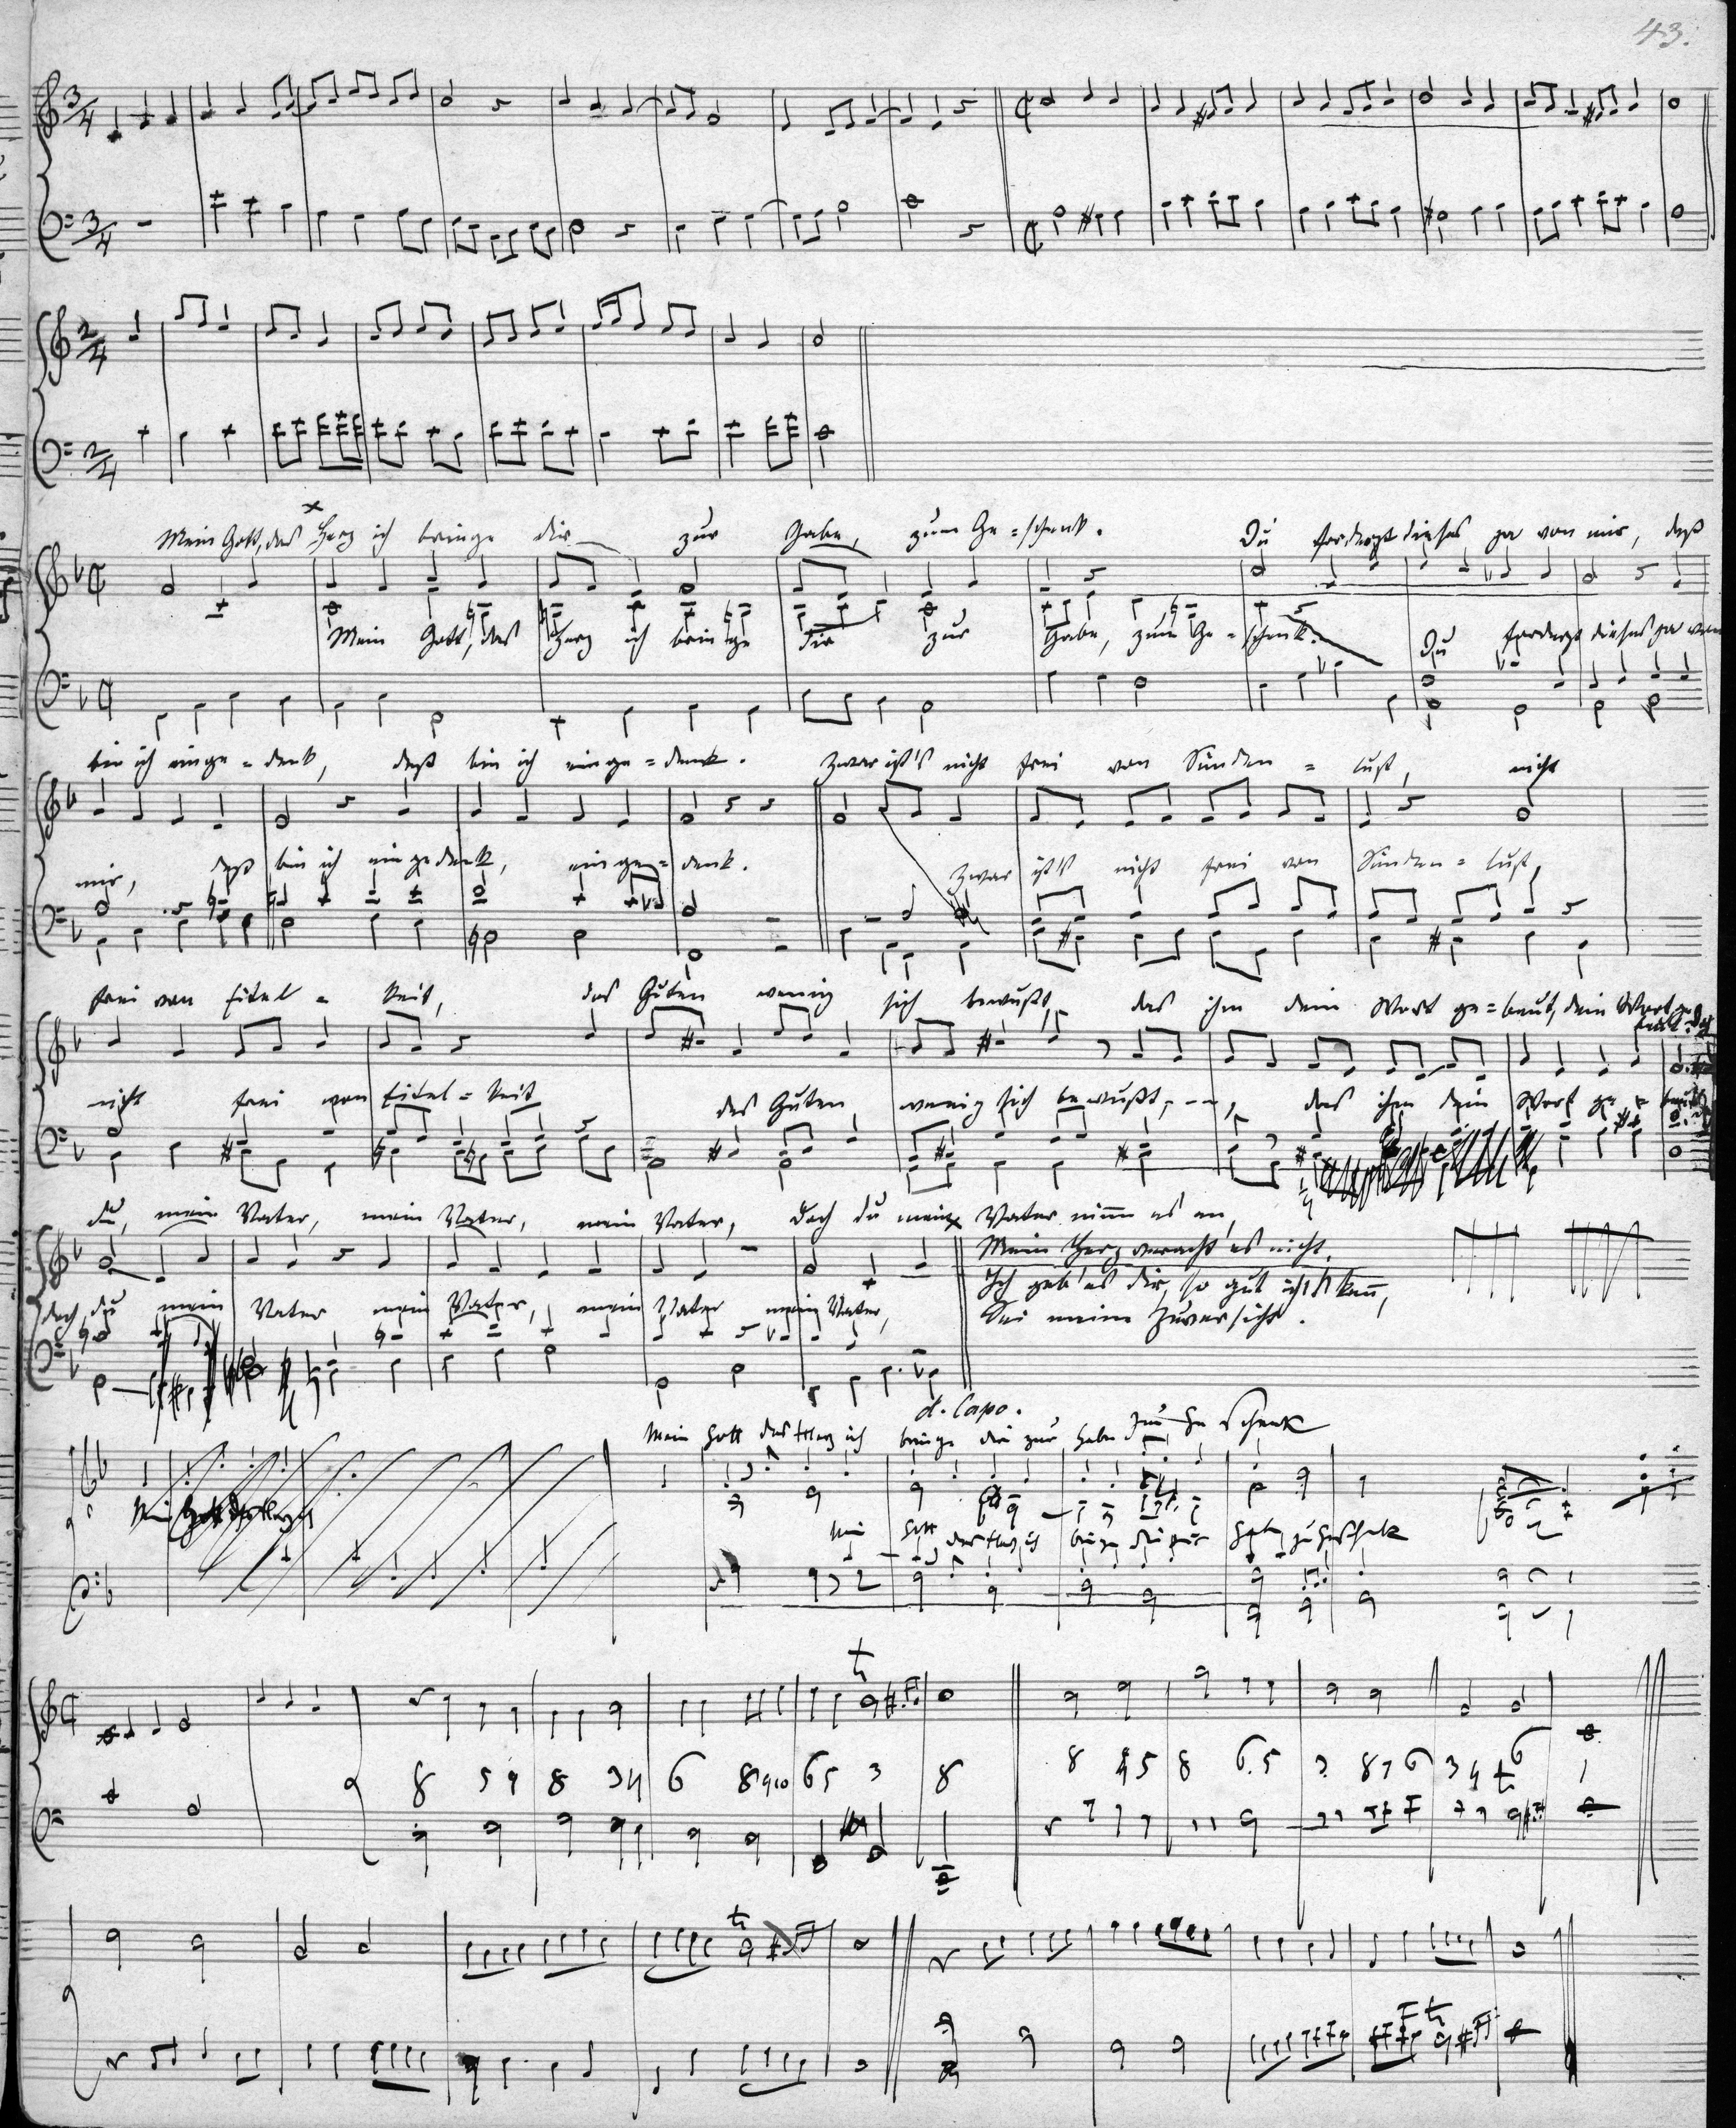 43.
Mein Gott, das Herz ich bringe dir zur Gabe, zum Ge=schenk. Du forderst dieses ja von mir, deß
Mein Gott, das Herz ich bringe dir zur Gabe, zum Ge=schenk. Du forderst dieses ja von
bin ich einge=denk, deß bin ich einge=denk. Zwar ist's nicht frei von Sünden=lust, nicht
mir, deß bin ich eingedenk, einge=denk. Zwar ist's nicht frei von Sünden=lust,
frei von Eitel=keit, des Guten wenig sich bewußt, das ihm dein Wort ge=beut, dein Wort
nicht frei von Eitel=keit des Guten wenig sich bewußt, das ihm dein Wort ge=beut
du, mein Vater, mein Vater, mein Vater, doch du mein Vater nimm es an,
Mein Herz veracht' es nicht,
Ich geb' es dir, so gut ich's kann,
Sei meine Zuversicht.
doch, du mein Vater mein Vater, mein Vater mein Vater,
d. Capo.
Mein Gott das Herz ich bringe dir zur Gabe zum Ge schenk
Mein Gott das Herz ich
Mein Gott das Herz ich bringe dir zur
8 5 4 8 3 4 6 8 9 10 6 5 3 8
8 4 5 8 6.5 3 8 7 6 3 4 6 1